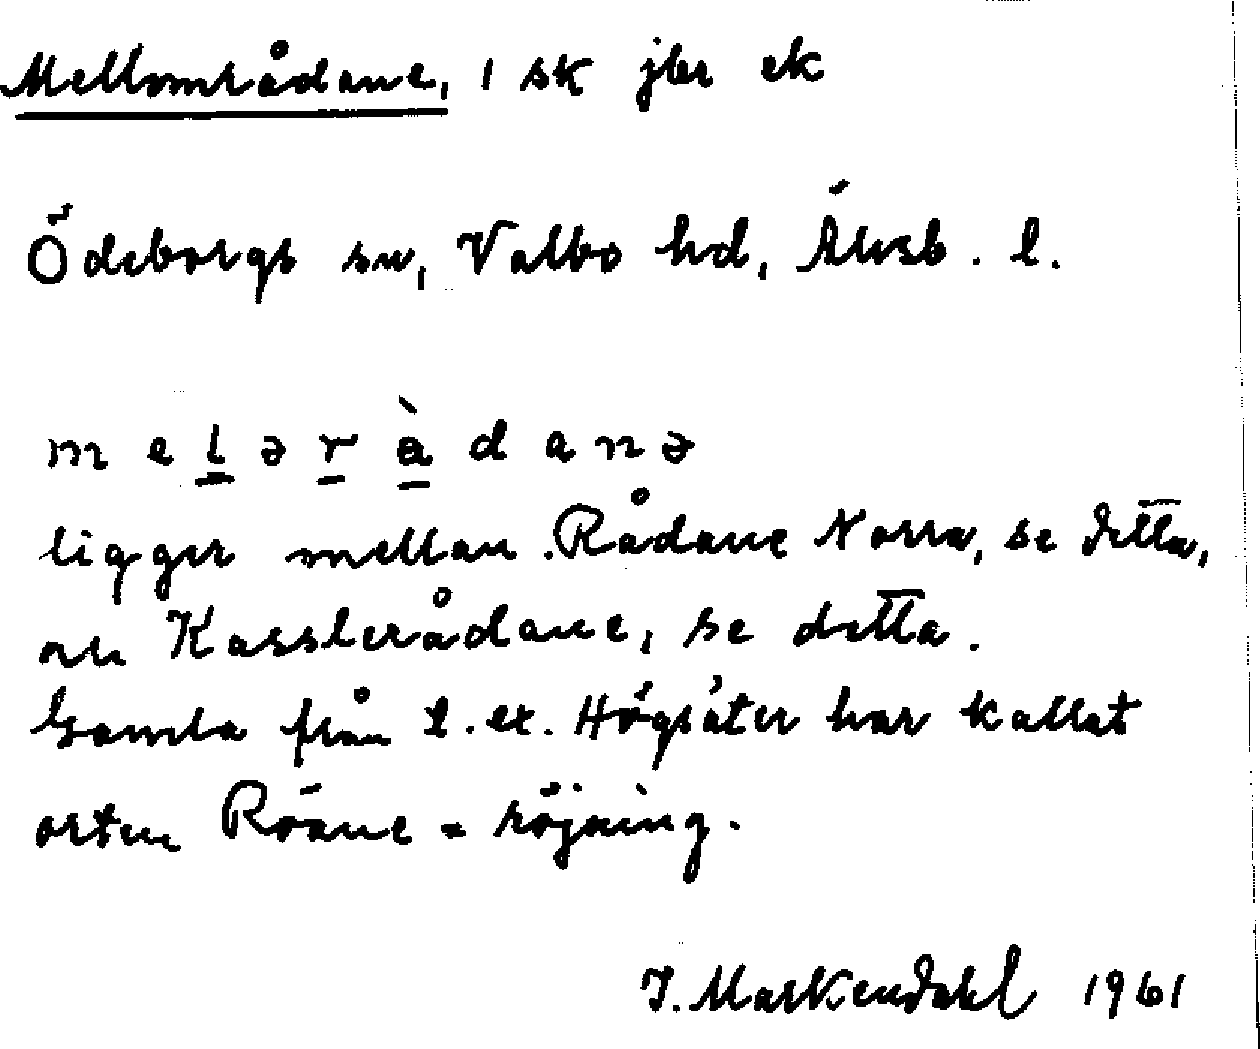 Mellområdane, 1 sk jbr ek
Ödeborgs sn, Valbo hd, Älvsb. l.
m e l ə r à d a n ə
ligger mellan Rådane Norra, se detta,
och Kasslerådane, se detta.
Gamla från t. ex. Högsäter har kallat
orten Röane = röjning.
J. Markendahl 1961